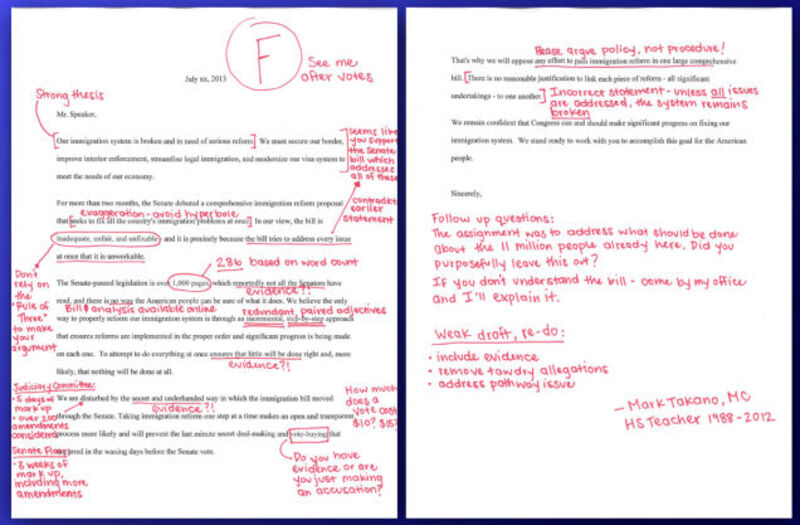 F
See me
after votes
July xx, 2013
Strong thesis
Mr. Speaker,
Our immigration system is broken and in need of serious reform. We must secure our border,
improve interior enforcement, streamline legal immigration, and modernize our visa system to
meet the needs of our economy.
seems like
you support
the Senate
bill which
addresses
all of these
For more than two months, the Senate debated a comprehensive immigration reform proposal
exaggeration - avoid hyperbole
that seeks to fix all the country's immigration problems at once. In our view, the bill is
contradicts
earlier
statement
inadequate, unfair, and unfixable and it is precisely because the bill tries to address every issue
at once that it is unworkable.
286 based on word count
Don't
rely on
the
"Rule of
Three"
to make
your
argument
The Senate-passed legislation is over 1,000 pages, which reportedly not all the Senators have
evidence?!
read, and there is no way the American people can be sure of what it does. We believe the only
Bill & analysis available online
redundant, paired adjectives
way to properly reform our immigration system is through an incremental, step-by-step approach
that ensures reforms are implemented in the proper order and significant progress is being made
on each one. To attempt to do everything at once ensures that little will be done right and, more
evidence?!
likely, that nothing will be done at all.
Judiciary Committee:
• 5 days of
mark up
• over 200
amendments
considered
Senate Floor:
• 3 weeks of
mark up,
including more
amendments
We are disturbed by the secret and underhanded way in which the immigration bill moved
evidence?!
through the Senate. Taking immigration reform one step at a time makes an open and transparent
process more likely and will prevent the last minute secret deal-making and vote-buying that
occurred in the waning days before the Senate vote.
How much
does a
vote cost
$10? $15?
Do you have
evidence or are
you just making
an accusation?
Please argue policy, not procedure!
That's why we will oppose any effort to pass immigration reform in one large comprehensive
bill. There is no reasonable justification to link each piece of reform - all significant
undertakings - to one another.
Incorrect statement - unless all issues
are addressed, the system remains
broken
We remain confident that Congress can and should make significant progress on fixing our
immigration system. We stand ready to work with you to accomplish this goal for the American
people.
Sincerely,
Follow up questions:
The assignment was to address what should be done
about the 11 million people already here. Did you
purposefully leave this out?
If you don't understand the bill - come by my office
and I'll explain it.
Weak draft, re-do:
• include evidence
• remove tawdry allegations
• address pathway issue
— Mark Takano, MC
HS Teacher 1988-2012